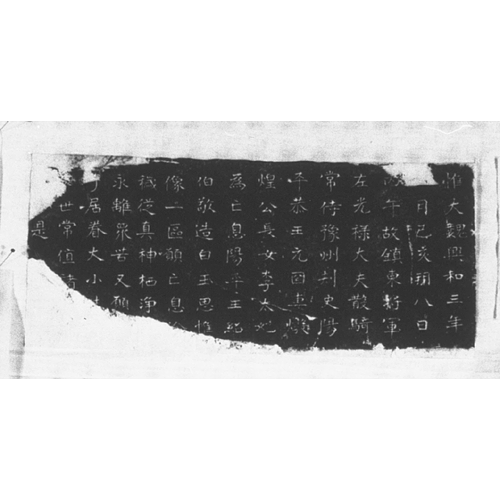 惟大魏興和三年
月己亥朔八日
午故鎮東將軍
左光祿大夫散騎
常侍豫州刺史陽
平恭王元固妻燉
煌公長女李太妃
為亡息陽平王紀
伯敬造白玉思惟
像一區願亡息
識從真神栖淨
永離眾苦又願
居眷大小
世常值
是